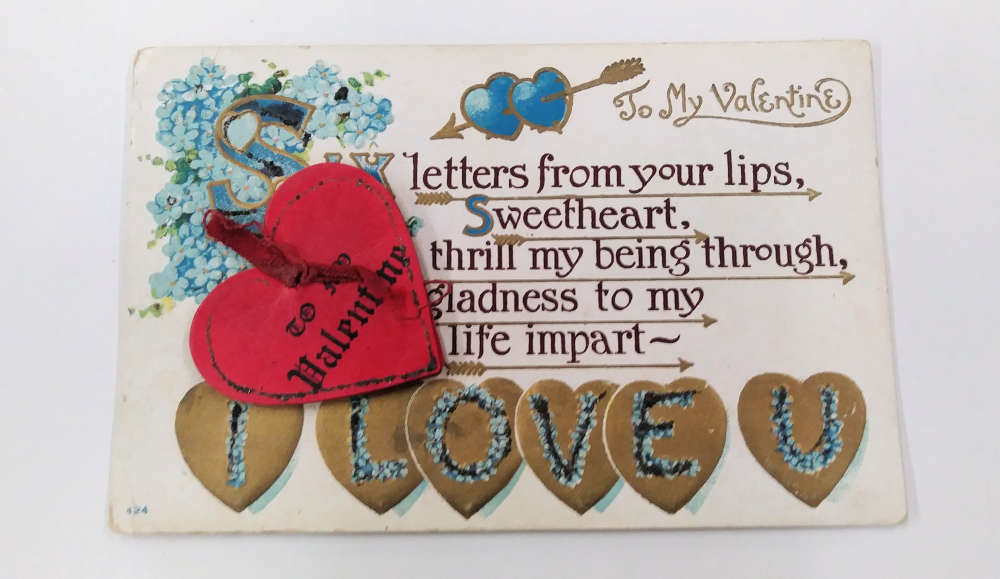 To My Valentine
Six letters from your lips,
Sweetheart,
thrill my being through,
gladness to my
life impart~
To My
Valentine
I LOVE U
424